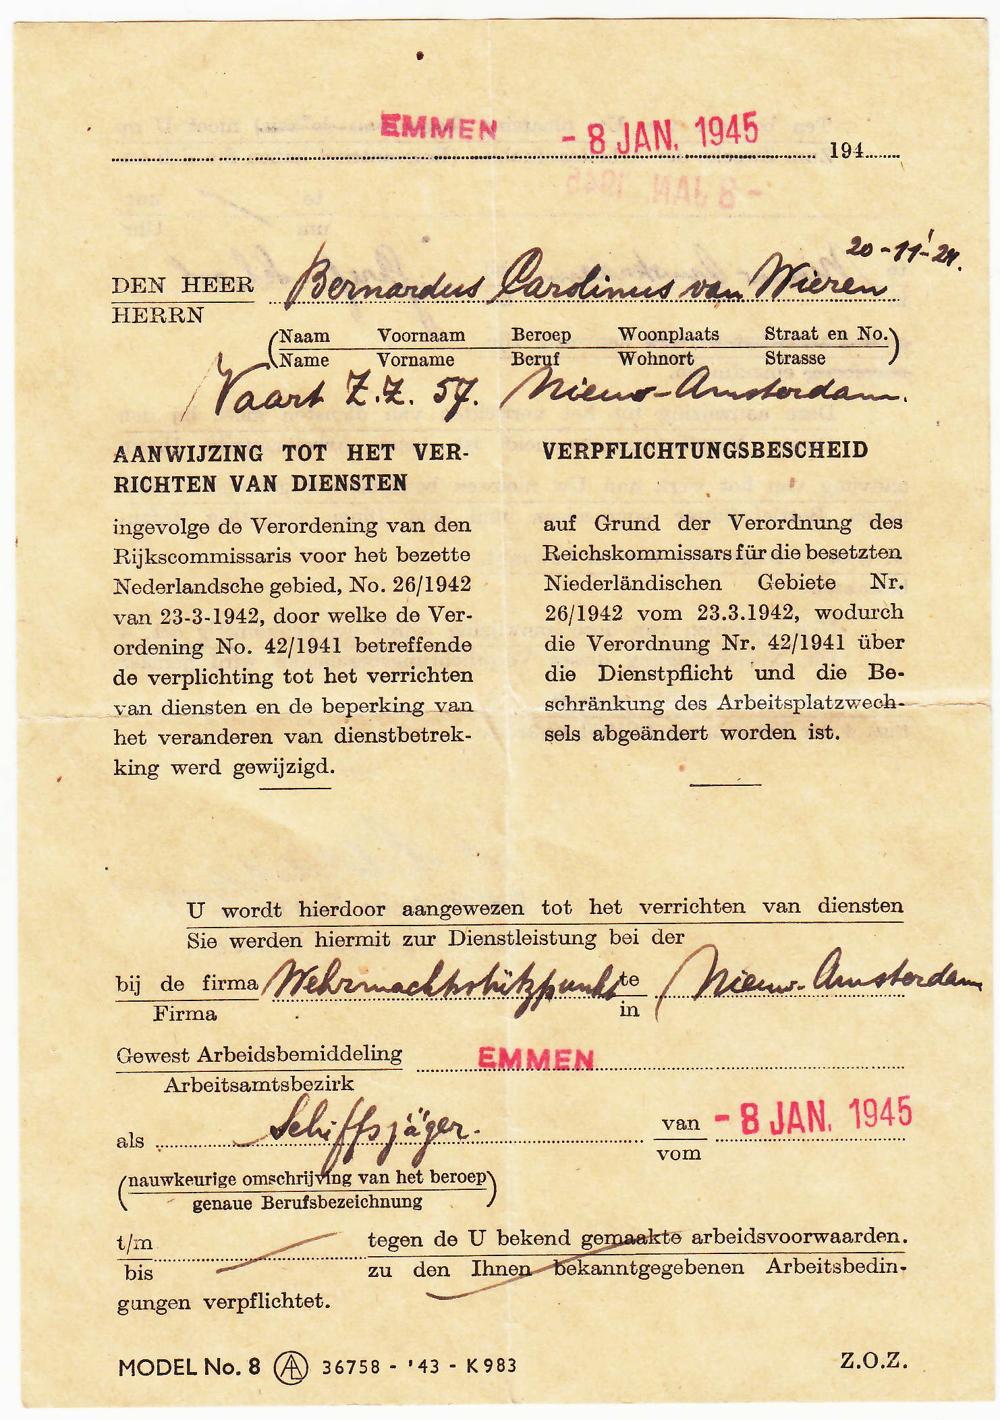 EMMEN - 8 JAN. 1945 194
20-11-24.
DEN HEER Bernardus Carolinus van Wieren
HERRN
(Naam Voornaam Beroep Woonplaats Straat en No.)
(Name Vorname Beruf Wohnort Strasse)
Vaart Z.Z. 57. Nieuw-Amsterdam.
AANWIJZING TOT HET VER-
RICHTEN VAN DIENSTEN
ingevolge de Verordening van den
Rijkscommissaris voor het bezette
Nederlandsche gebied, No. 26/1942
van 23-3-1942, door welke de Ver-
ordening No. 42/1941 betreffende
de verplichting tot het verrichten
van diensten en de beperking van
het veranderen van dienstbetrek-
king werd gewijzigd.
VERPFLICHTUNGSBESCHEID
auf Grund der Verordnung des
Reichskommissars für die besetzten
Niederländischen Gebiete Nr.
26/1942 vom 23.3.1942, wodurch
die Verordnung Nr. 42/1941 über
die Dienstpflicht und die Be-
schränkung des Arbeitsplatzwech-
sels abgeändert worden ist.
U wordt hierdoor aangewezen tot het verrichten van diensten
Sie werden hiermit zur Dienstleistung bei der
bij de firma Wehrmachtstützpunkt te Nieuw-Amsterdam
Firma in
Gewest Arbeidsbemiddeling EMMEN
Arbeitsamtsbezirk
als Schiffsjäger. van - 8 JAN. 1945
vom
(nauwkeurige omschrijving van het beroep)
genaue Berufsbezeichnung
t/m tegen de U bekend gemaakte arbeidsvoorwaarden.
bis zu den Ihnen bekanntgegebenen Arbeitsbedin-
gungen verpflichtet.
MODEL No. 8 AL 36758 - '43 - K 983 Z.O.Z.